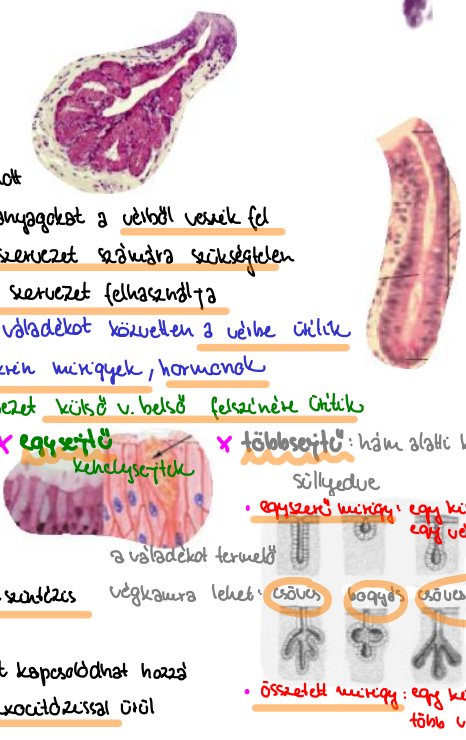 ott
anyagokat a vérből veszik fel
szervezet számára szükségtelen
szervezet felhasználja
váladékot közvetlen a vérbe ürítik
krin mirigyek, hormonok
ezet külső v. belső felszínére ürítik
x egysejtű
kehelysejtek
x többsejtű: hám alatti k
süllyedve
• egyszerű mirigy: egy ki
egy vé
a váladékot termelő
végkamra lehet: csöves bogyós csöves
szintézis
t kapcsolódhat hozzá
xocitózissal ürül
• összetett mirigy: egy ki
több v